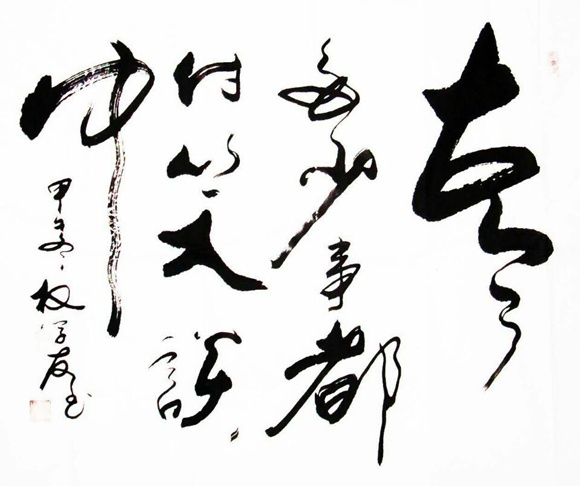 古今
多少事都
付笑談
中
甲午 学友书